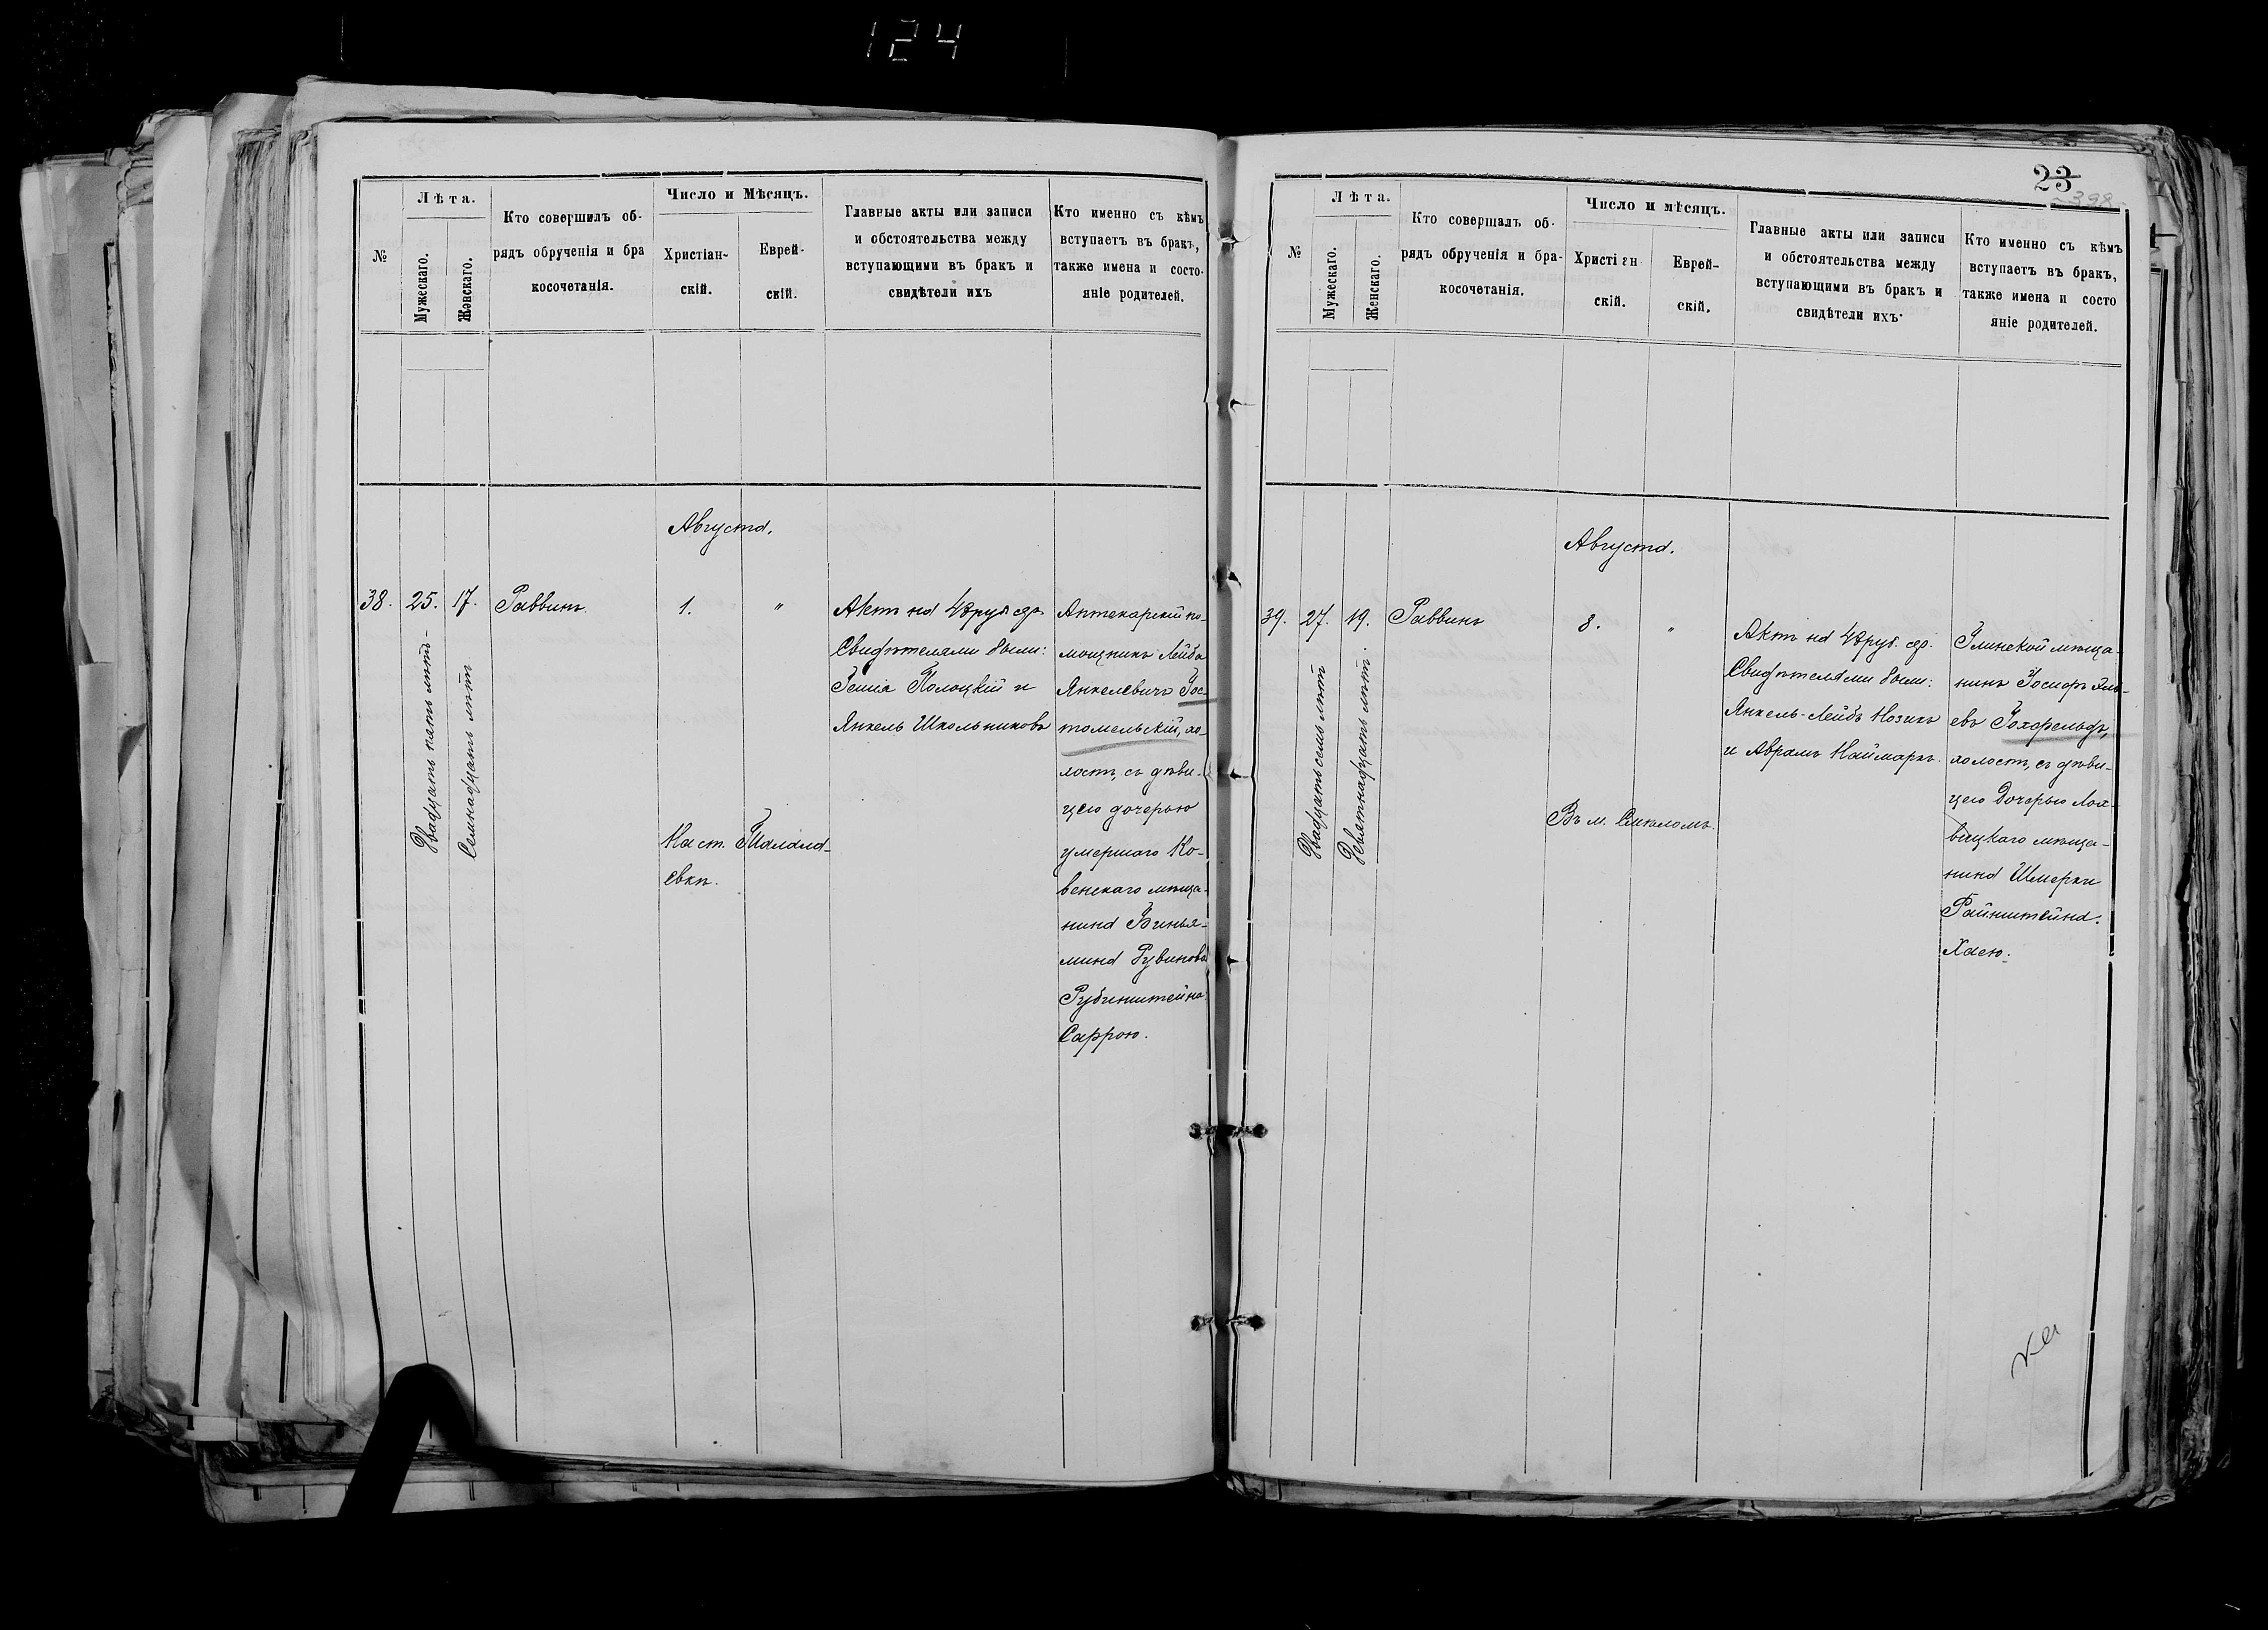 124
№
Лѣта.
Мужескаго.
Женскаго.
Кто совершилъ об-
рядъ обрученія и бра
косочетанія.
Число и Мѣсяцъ.
Христіан-
скій.
Еврей-
скій.
Главные акты или записи
и обстоятельства между
вступающими въ бракъ и
свидѣтели ихъ
Кто именно съ кѣмъ
вступаетъ въ бракъ,
также имена и состо-
яніе родителей.
Августа.
38.
25.
Двадцать пять лѣтъ
17.
Семнадцать лѣтъ
Раввинъ.
1.
"
На ст. Талала-
евкѣ.
Актъ на 48 руб. сер.
Свидѣтелями были:
Полоцкій и
Янкель Школьниковъ
Аптекарскій по-
мощникъ Лейба
Янкелевичъ Гос-
томельскій, хо-
лостъ, съ дѣви-
цею дочерью
умершаго Ко-
венскаго мѣща-
нина Винья-
мина Рувинова
Рубинштейна
Саррою.
23
398
№
Лѣта.
Мужескаго.
Женскаго.
Кто совершалъ об-
рядъ обрученія и бра-
косочетанія.
Число и мѣсяцъ.
Христіан
скій.
Еврей-
скій.
Главные акты или записи
и обстоятельства между
вступающими въ бракъ и
свидѣтели ихъ
Кто именно съ кѣмъ
вступаетъ въ бракъ,
также имена и состо
яніе родителей.
Августа.
39.
27.
Двадцать семь лѣтъ
19.
Девятнадцать лѣтъ.
Раввинъ
8.
"
Въ м. Смѣломъ.
Актъ на 48 руб. сер.
Свидѣтелями были:
Янкель-Лейбъ Нозикъ
и Аврамъ Наймаркъ.
Глинской мѣща-
нинъ Іосифъ
евъ Гохфельдъ,
холостъ, съ дѣви-
цею дочерью Лох-
вицкаго мѣща-
нина Шмерки
Райнштейна.
Хаею.